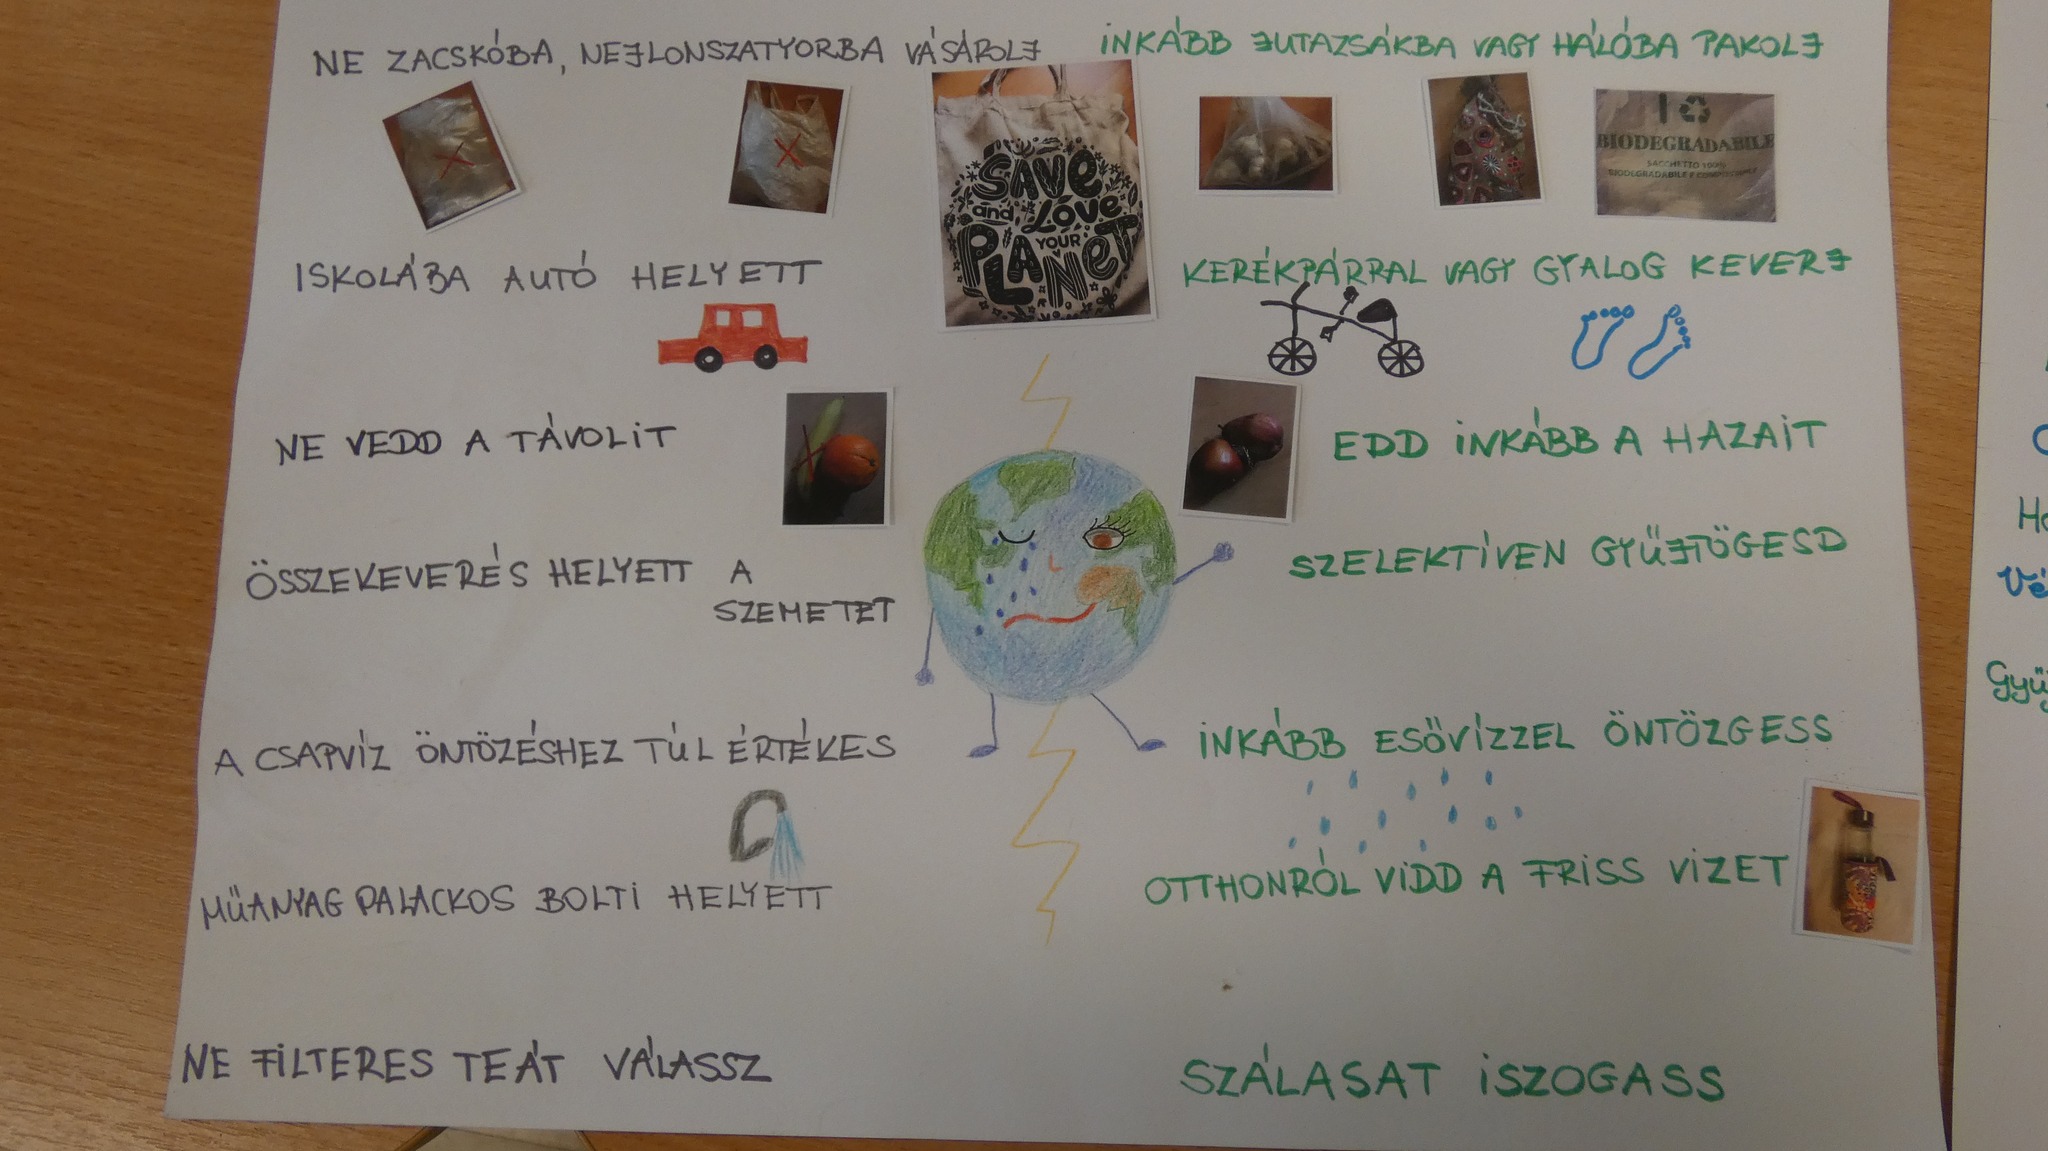 NE ZACSKÓBA, NEJLONSZATYORBA VÁSÁROLJ
INKÁBB JUTAZSÁKBA VAGY HÁLÓBA PAKOLJ
SAVE
and LOVE
YOUR
PLANET
BIODEGRADABILE
SACCHETTO 100%
BIODEGRADABILE E COMPOSTABILE
ISKOLÁBA AUTÓ HELYETT
KERÉKPÁRRAL VAGY GYALOG KEVERJ
NE VEDD A TÁVOLIT
EDD INKÁBB A HAZAIT
ÖSSZEKEVERÉS HELYETT A
SZEMETET
SZELEKTÍVEN GYŰJTÖGESD
A CSAPVÍZ ÖNTÖZÉSHEZ TÚL ÉRTÉKES
INKÁBB ESŐVÍZZEL ÖNTÖZGESS
MŰANYAG PALACKOS BOLTI HELYETT
OTTHONRÓL VIDD A FRISS VIZET
NE FILTERES TEÁT VÁLASSZ
SZÁLASAT ISZOGASS